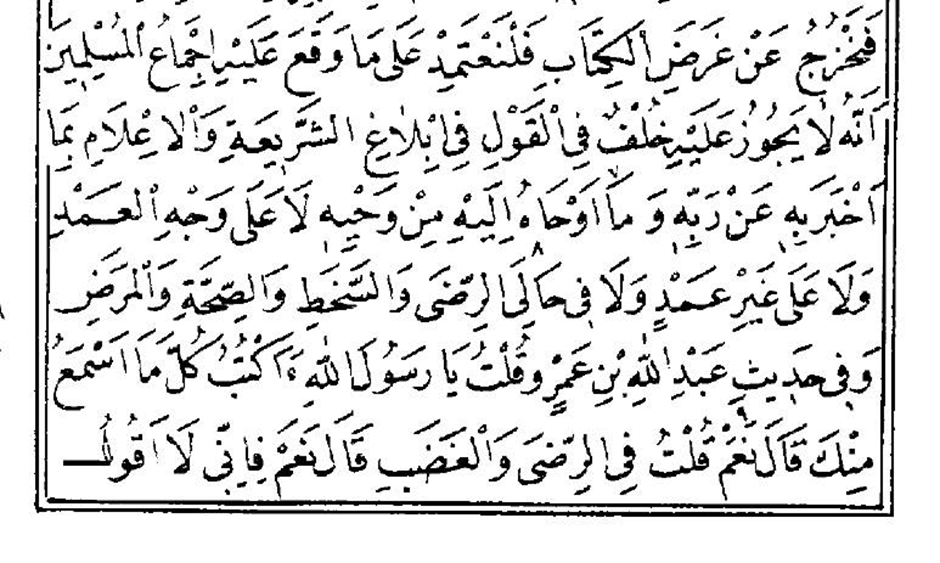 فَنَخْرُجُ عَنْ غَرَضِ الْكِتَابِ فَلْنَعْتَمِدْ عَلَى مَا وَقَعَ عَلَيْهِ اِجْمَاعُ الْمُسْلِمِينَ
اَنَّهُ لَا يَجُوزُ عَلَيْهِ خُلْفٌ فِى الْقَوْلِ فِى اِبْلَاغِ الشَّرِيعَةِ وَالْاِعْلَامِ بِمَا
اَخْبَرَ بِهِ عَنْ رَبِّهِ وَ مَا اَوْحَاهُ اِلَيْهِ مِنْ وَحْيِهِ لَا عَلَى وَجْهِ الْعَمْدِ
وَلَا عَلَى غَيْرِ عَمْدٍ وَلَا فِى حَالَىِ الرِّضَى وَالسَّخَطِ وَالصِّحَّةِ وَالْمَرَضِ
وَفِى حَدِيثِ عَبْدِ اللهِ بْنِ عَمْرٍو قُلْتُ يَا رَسُولَ اللهِ ءَاَكْتُبُ كُلَّ مَا اَسْمَعُ
مِنْكَ قَالَ نَعَمْ قُلْتُ فِى الرِّضَى وَالْغَضَبِ قَالَ نَعَمْ فَاِنِّى لَا اَقُولُ